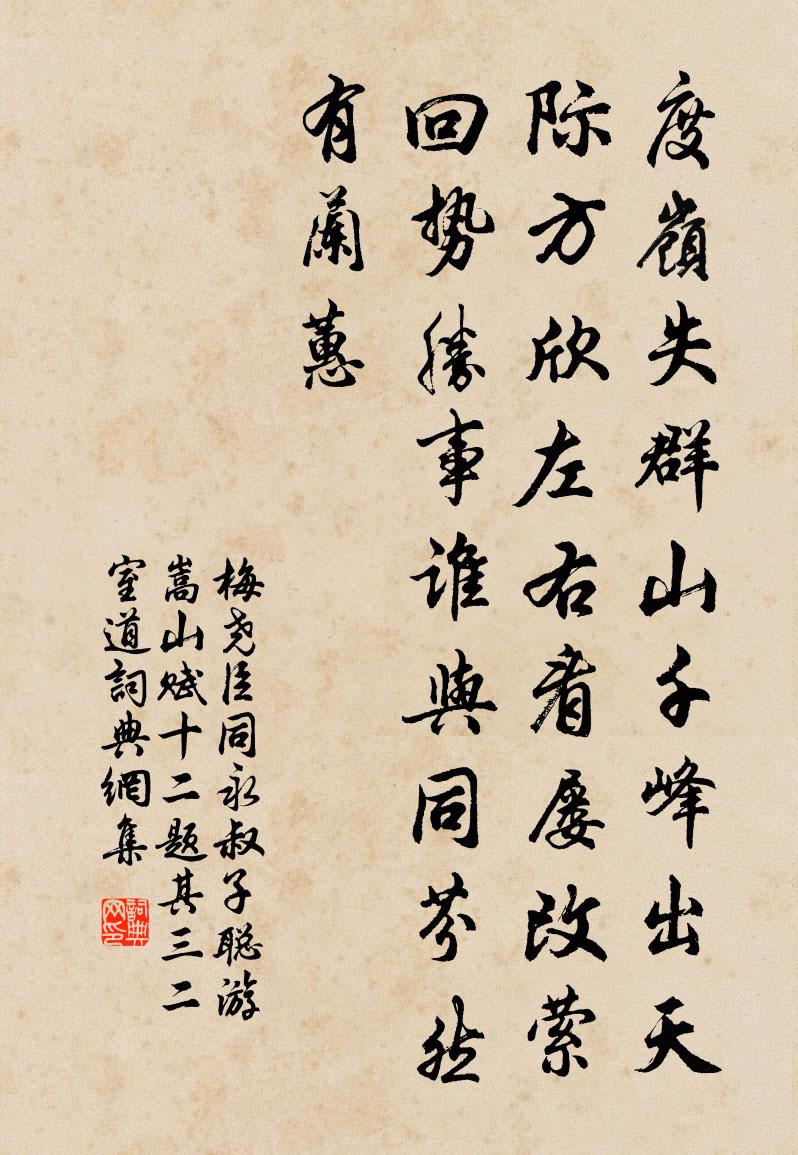 度嶺失群山千峰出天
际方欣左右看屡改萦
回势勝事谁與同芬然
有蘭蕙
梅尧臣同永叔子聪游
嵩山赋十二题其三二
室道詞典網集
詞典
网印